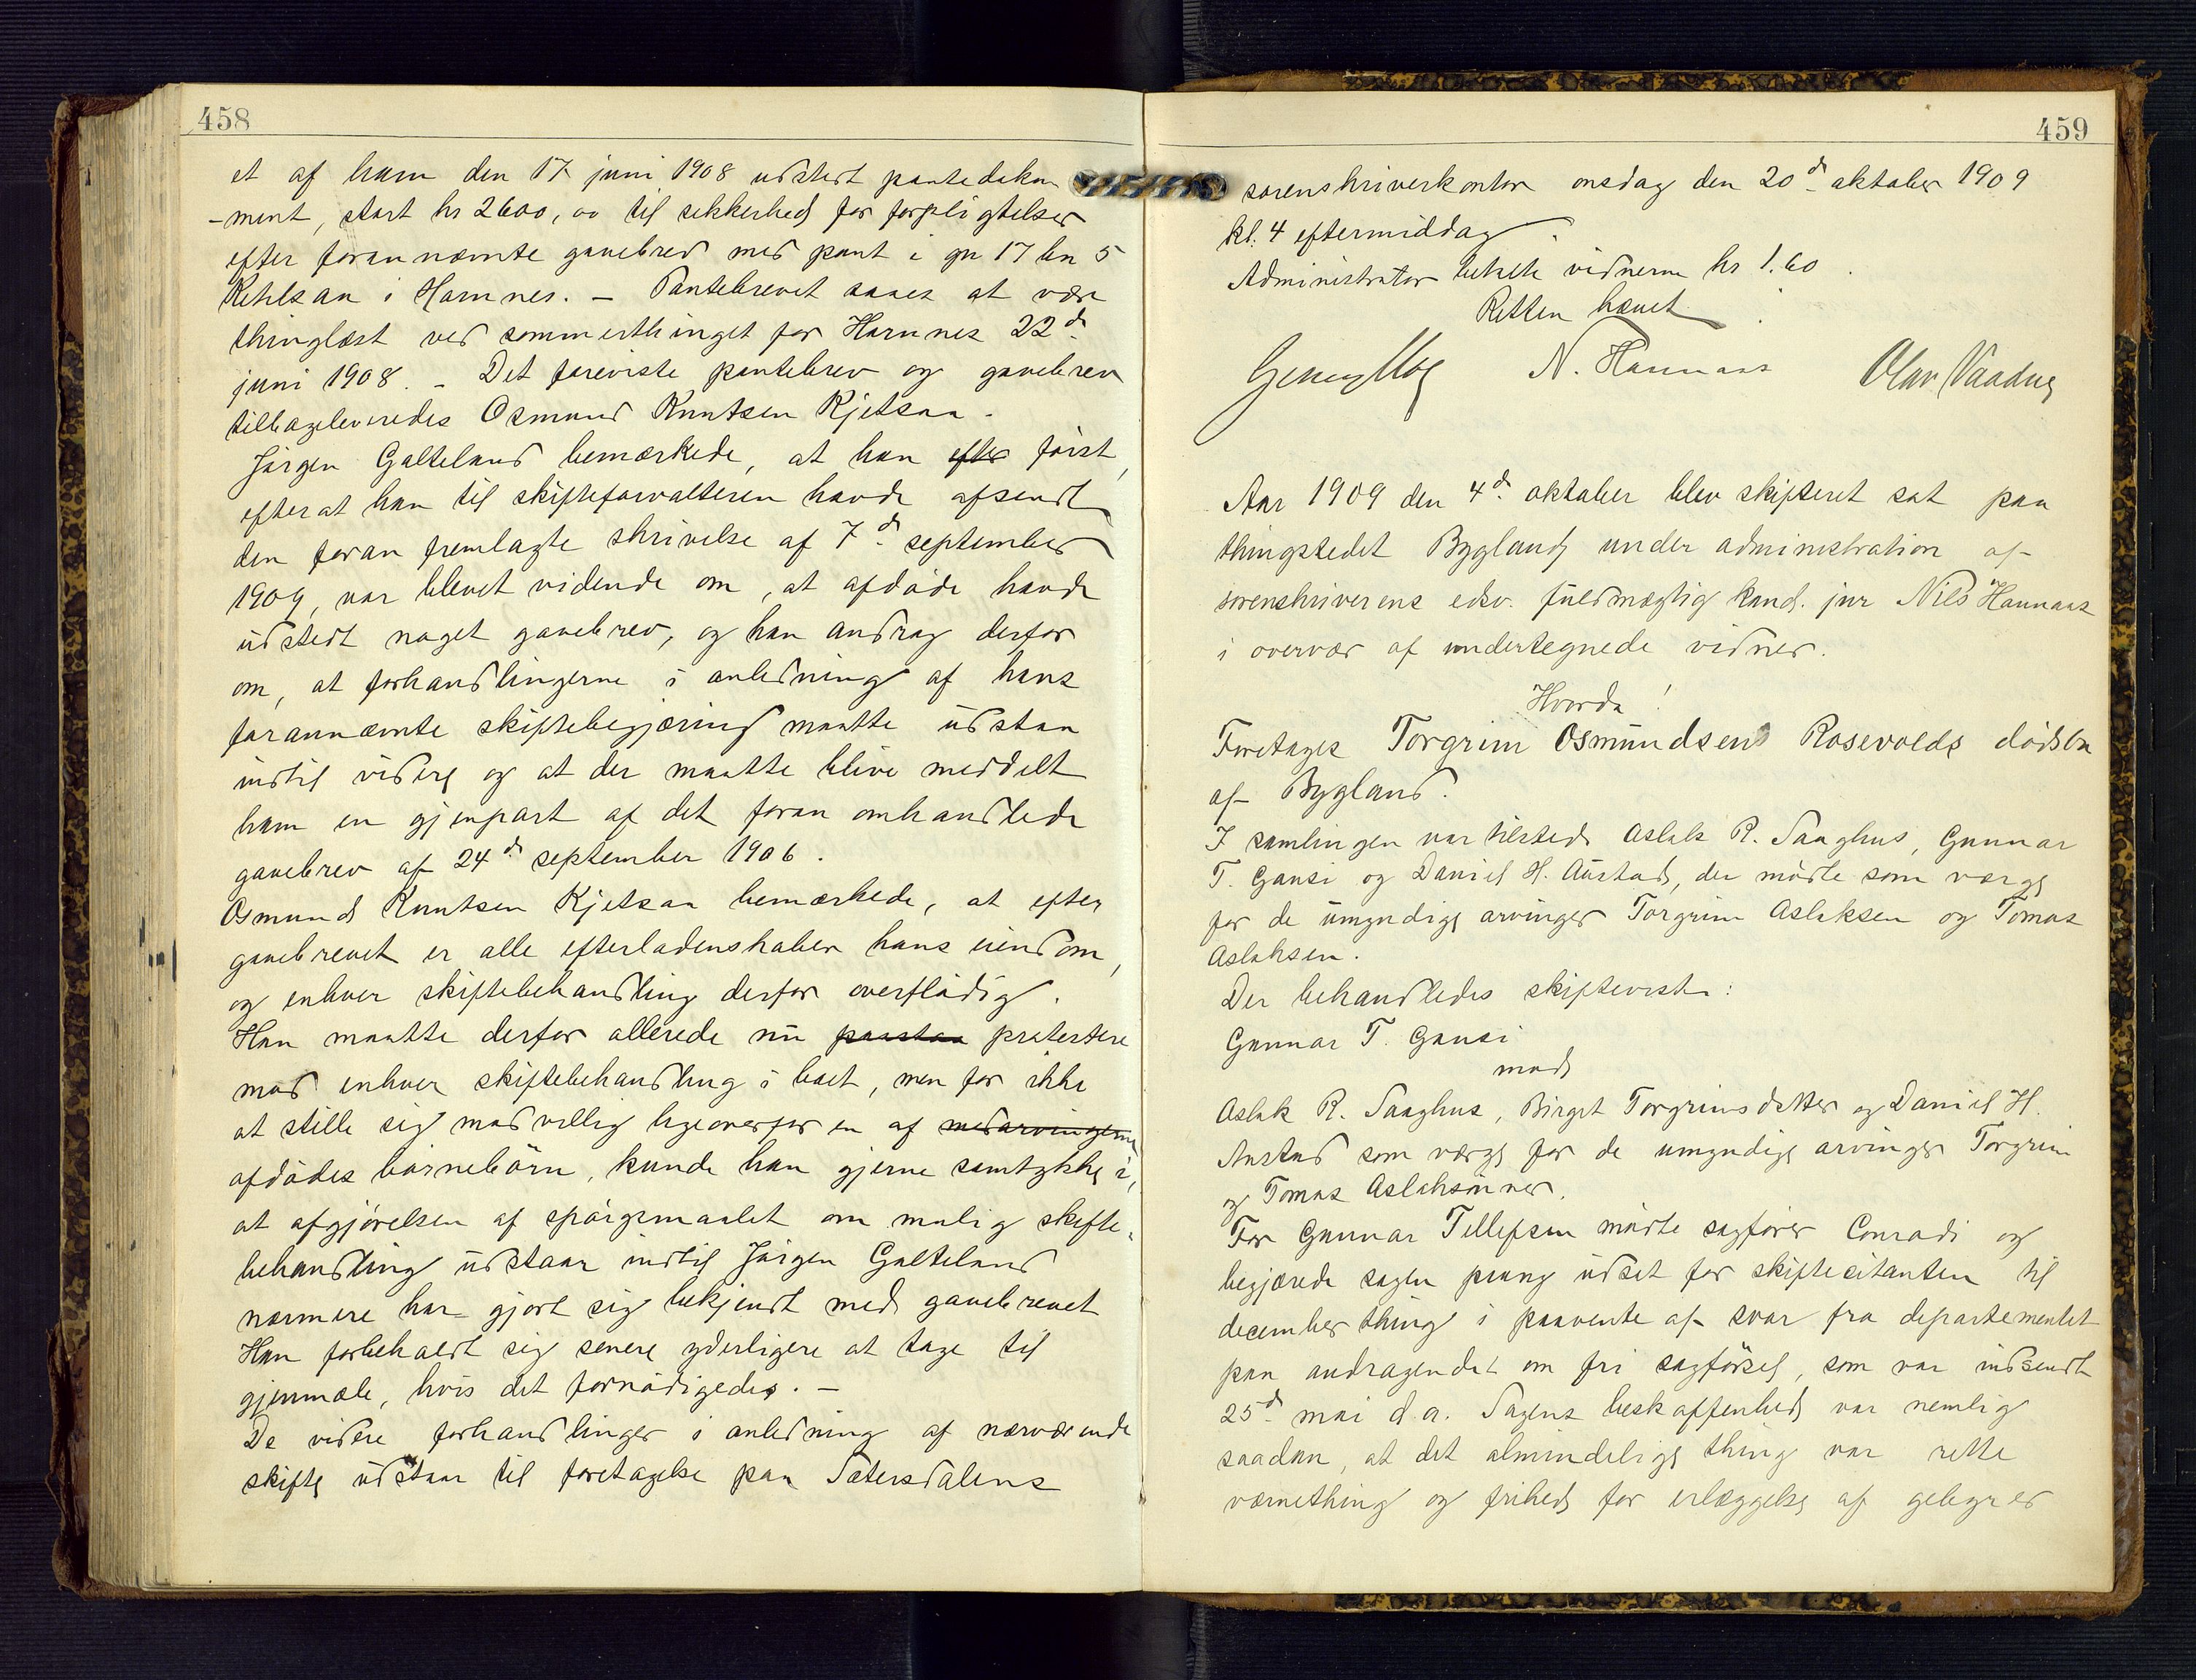 458
et af ham den 17 juni 1908 udstedt pantedoku
-ment, stort kr 2600,00 til sikkerhed for forpligtelser
efter forannævnte gavebrev med pant i gn 17 bn 5
Ketilsaa i Hornnes. – Pantebrevet saaes at være
thinglæst ved sommerthinget for Hornnes 22d.
juni 1908. – Det foreviste pantebrev og gavebrev
tilbageleveredes Osmund Knutsen Kjetsaa.
Jörgen Galteland bemærkede, at han efter först,
efter at han til skifteforvalteren havde afsendt
den foran fremlagte skrivelse af 7d. september
1909, var blevet vidende om, at afdöde havde
udstedt noget gavebrev, og han androg derfor
om, at forhandlingerne i anledning af hans
forannævnte skiftebegjæring maatte udstaa
indtil videre og at der maatte blive meddelt
ham en gjenpart af det foran omhandlede
gavebrev af 24d. september 1906.
Osmund Knutsen Kjetsaa bemærkede, at efter
gavebrevet er alle efterladenskaber hans eiendom,
og enhver skiftebehandling derfor overflödig.
Han maatte derfor allerede nu paastaa protestere
mod enhver skiftebehandling i boet, men for ikke
at stille sig modvillig ligeoverfor en af medarvingerne
afdödes börnebörn, kunde han gjerne samtykke i,
at afgjörelsen af spörgsmaalet om mulig skifte-
behandling udstaar indtil Jörgen Galteland
nærmere har gjort sig bekjendt med gavebrevet
Han forbeholdt sig senere yderligere at tage til
gjenmæle, hvis det fornödigedes. –
De videre forhandlinger i anledning af nærværende
skifte udstaar til foretagelse paa Sætersdalens
459
sorenskriverkontor onsdag den 20d. oktober 1909
kl. 4 eftermiddag.
Administrator betalte vidnerne kr 1.60.
Retten hævet.
N. Hannaas Olav Vaadne
Aar 1909 den 4d. oktober blev skifteret sat paa
thingstedet Bygland under administration af
sorenskriverens edsv. fuldmægtig kand. jur Nils Hannaas
i overvær af undertegnede vidner.
Hvorda!
Foretages Torgrim Osmundsens Rosevolds dödsbo
af Bygland.
I samlingen var tilstede Aslak R. Saaghus, Gunnar
T. Gausi og Daniel H. Austad, der mödte som verge
for de umyndige arvinger Torgrim Aslaksen og Tomas
Aslaksen.
Der behandledes skiftetvisten:
Gunnar T. Gausi
mod
Aslak R. Saaghus, Birget Torgrimsdatter og Daniel H.
Austad som værge for de umyndige arvinger Torgrim
og Tomas Aslaksönner.
For Gunnar Tellefsen mödte sagförer Conradi og
begjærede sagen paany udsat for skiftecitanten til
december thing i paavente af svar fra departementet
paa andragendet om fri sagförsel, som var indsendt
25d. mai d.a. Sagens beskaffenhed var nemlig
saadan, at det almindelige thing var rette
værnething og frihed for erlæggelse af gebyrer